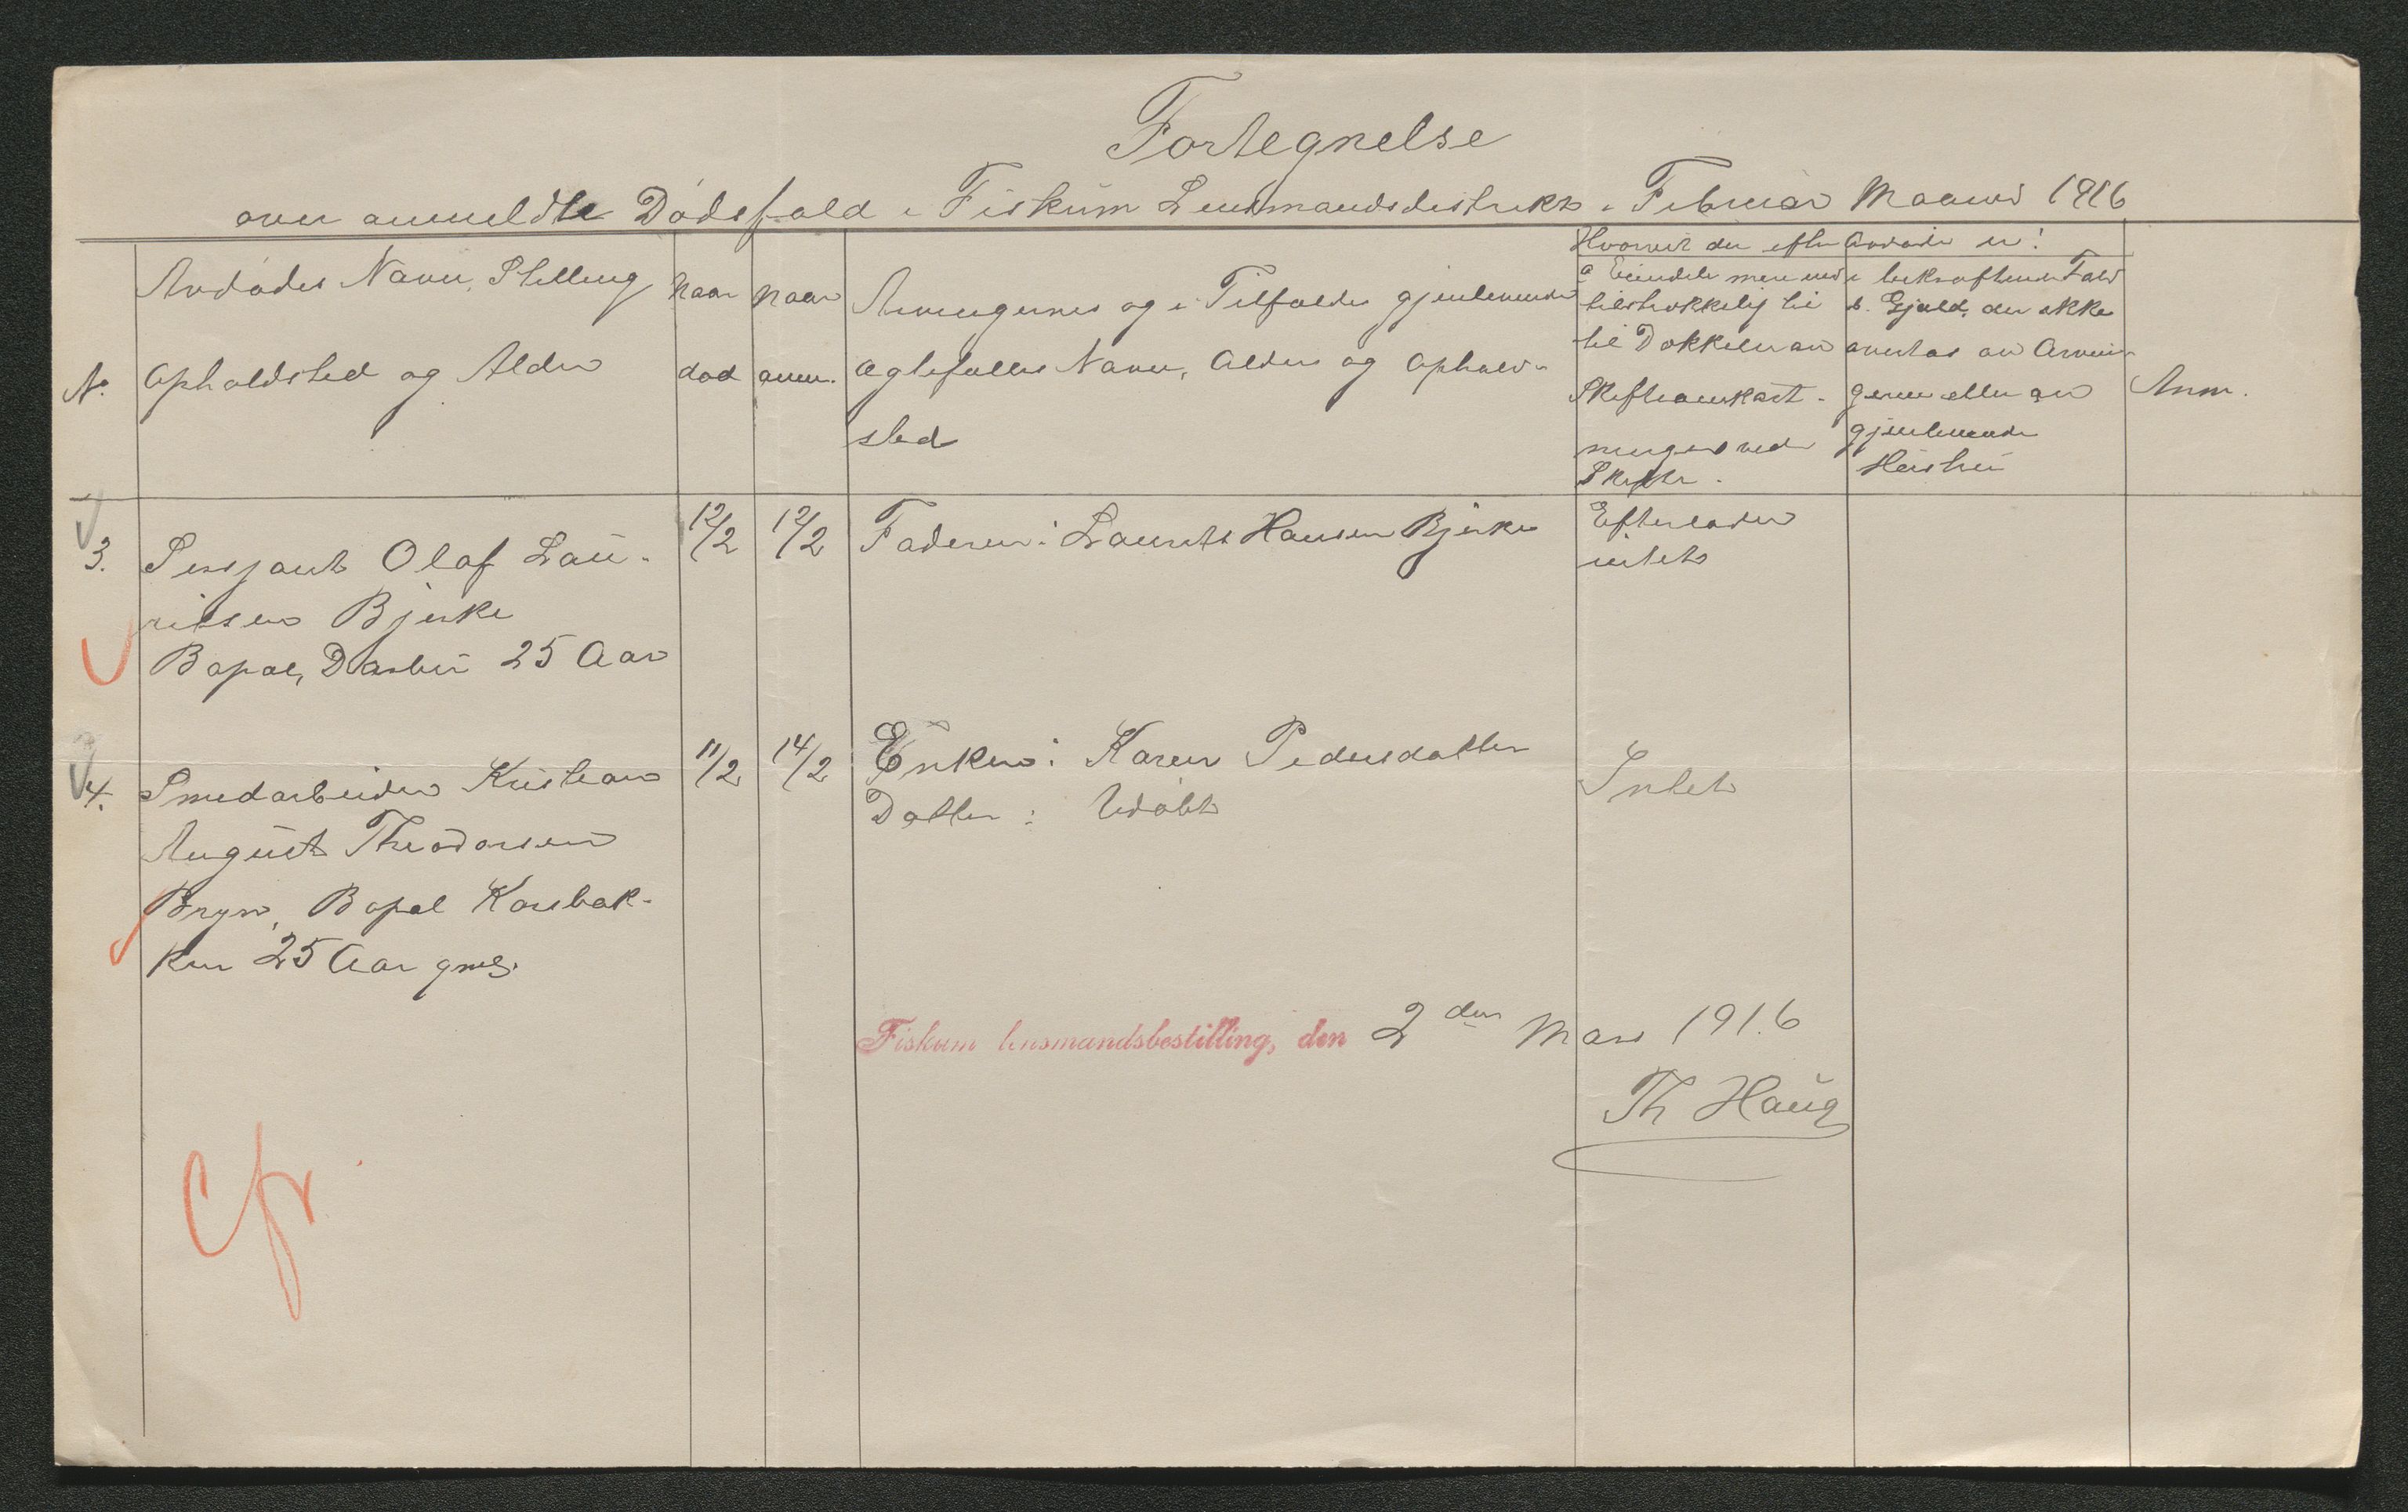 Fortegnelse
over anmeldte Dødsfald i Fiskum Lensmandsdistrikt i Februar Maaned 1916
No.
Avdødes Navn, Stilling
Opholdsted og Alder
Naar
død
Naar
anm.
Arvingernes og i Tilfælde gjenlevende
Ægtefælles Navn, Alder og Ophold-
sted
Hvorvit der efter Avdøde er:
a Eiendele mere end
tilstrækkelig til
til Dækkelse av
Skifteomkost-
ninger ved
Skifte.
i bekræftende Fald
b. Gjæld, der ikke
overtas av Arvin-
gerne eller av
gjenlevende
Hustru
Anm.
3.
Sersjant Olaf Lau-
ritsen Bjerke
Bopæl, Darbu 25 Aar
12/2
12/2
Faderen: Laurits Hansen Bjerke
Efterlader
intet
4.
Smedarbeider Kristian
August Theodorsen
Bryn, Bopæl Korsbak-
ken 25 Aar gml.
11/2
14/2
Enken: Karen Pedersdatter
Datter: Udøbt
Intet
Fiskum lensmandsbestilling, den 2 den Mars 1916
Th Haug
Cfr.